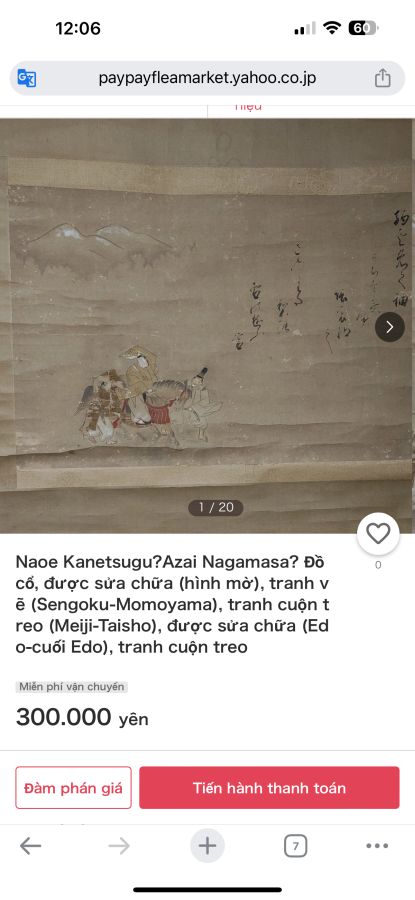 12:06
60
paypayfleamarket.yahoo.co.jp
hiệu
1 / 20
0
Naoe Kanetsugu?Azai Nagamasa? Đồ
cổ, được sửa chữa (hình mờ), tranh v
ẽ (Sengoku-Momoyama), tranh cuộn t
reo (Meiji-Taisho), được sửa chữa (Ed
o-cuối Edo), tranh cuộn treo
Miễn phí vận chuyển
300.000 yên
Đàm phán giá
Tiến hành thanh toán
7